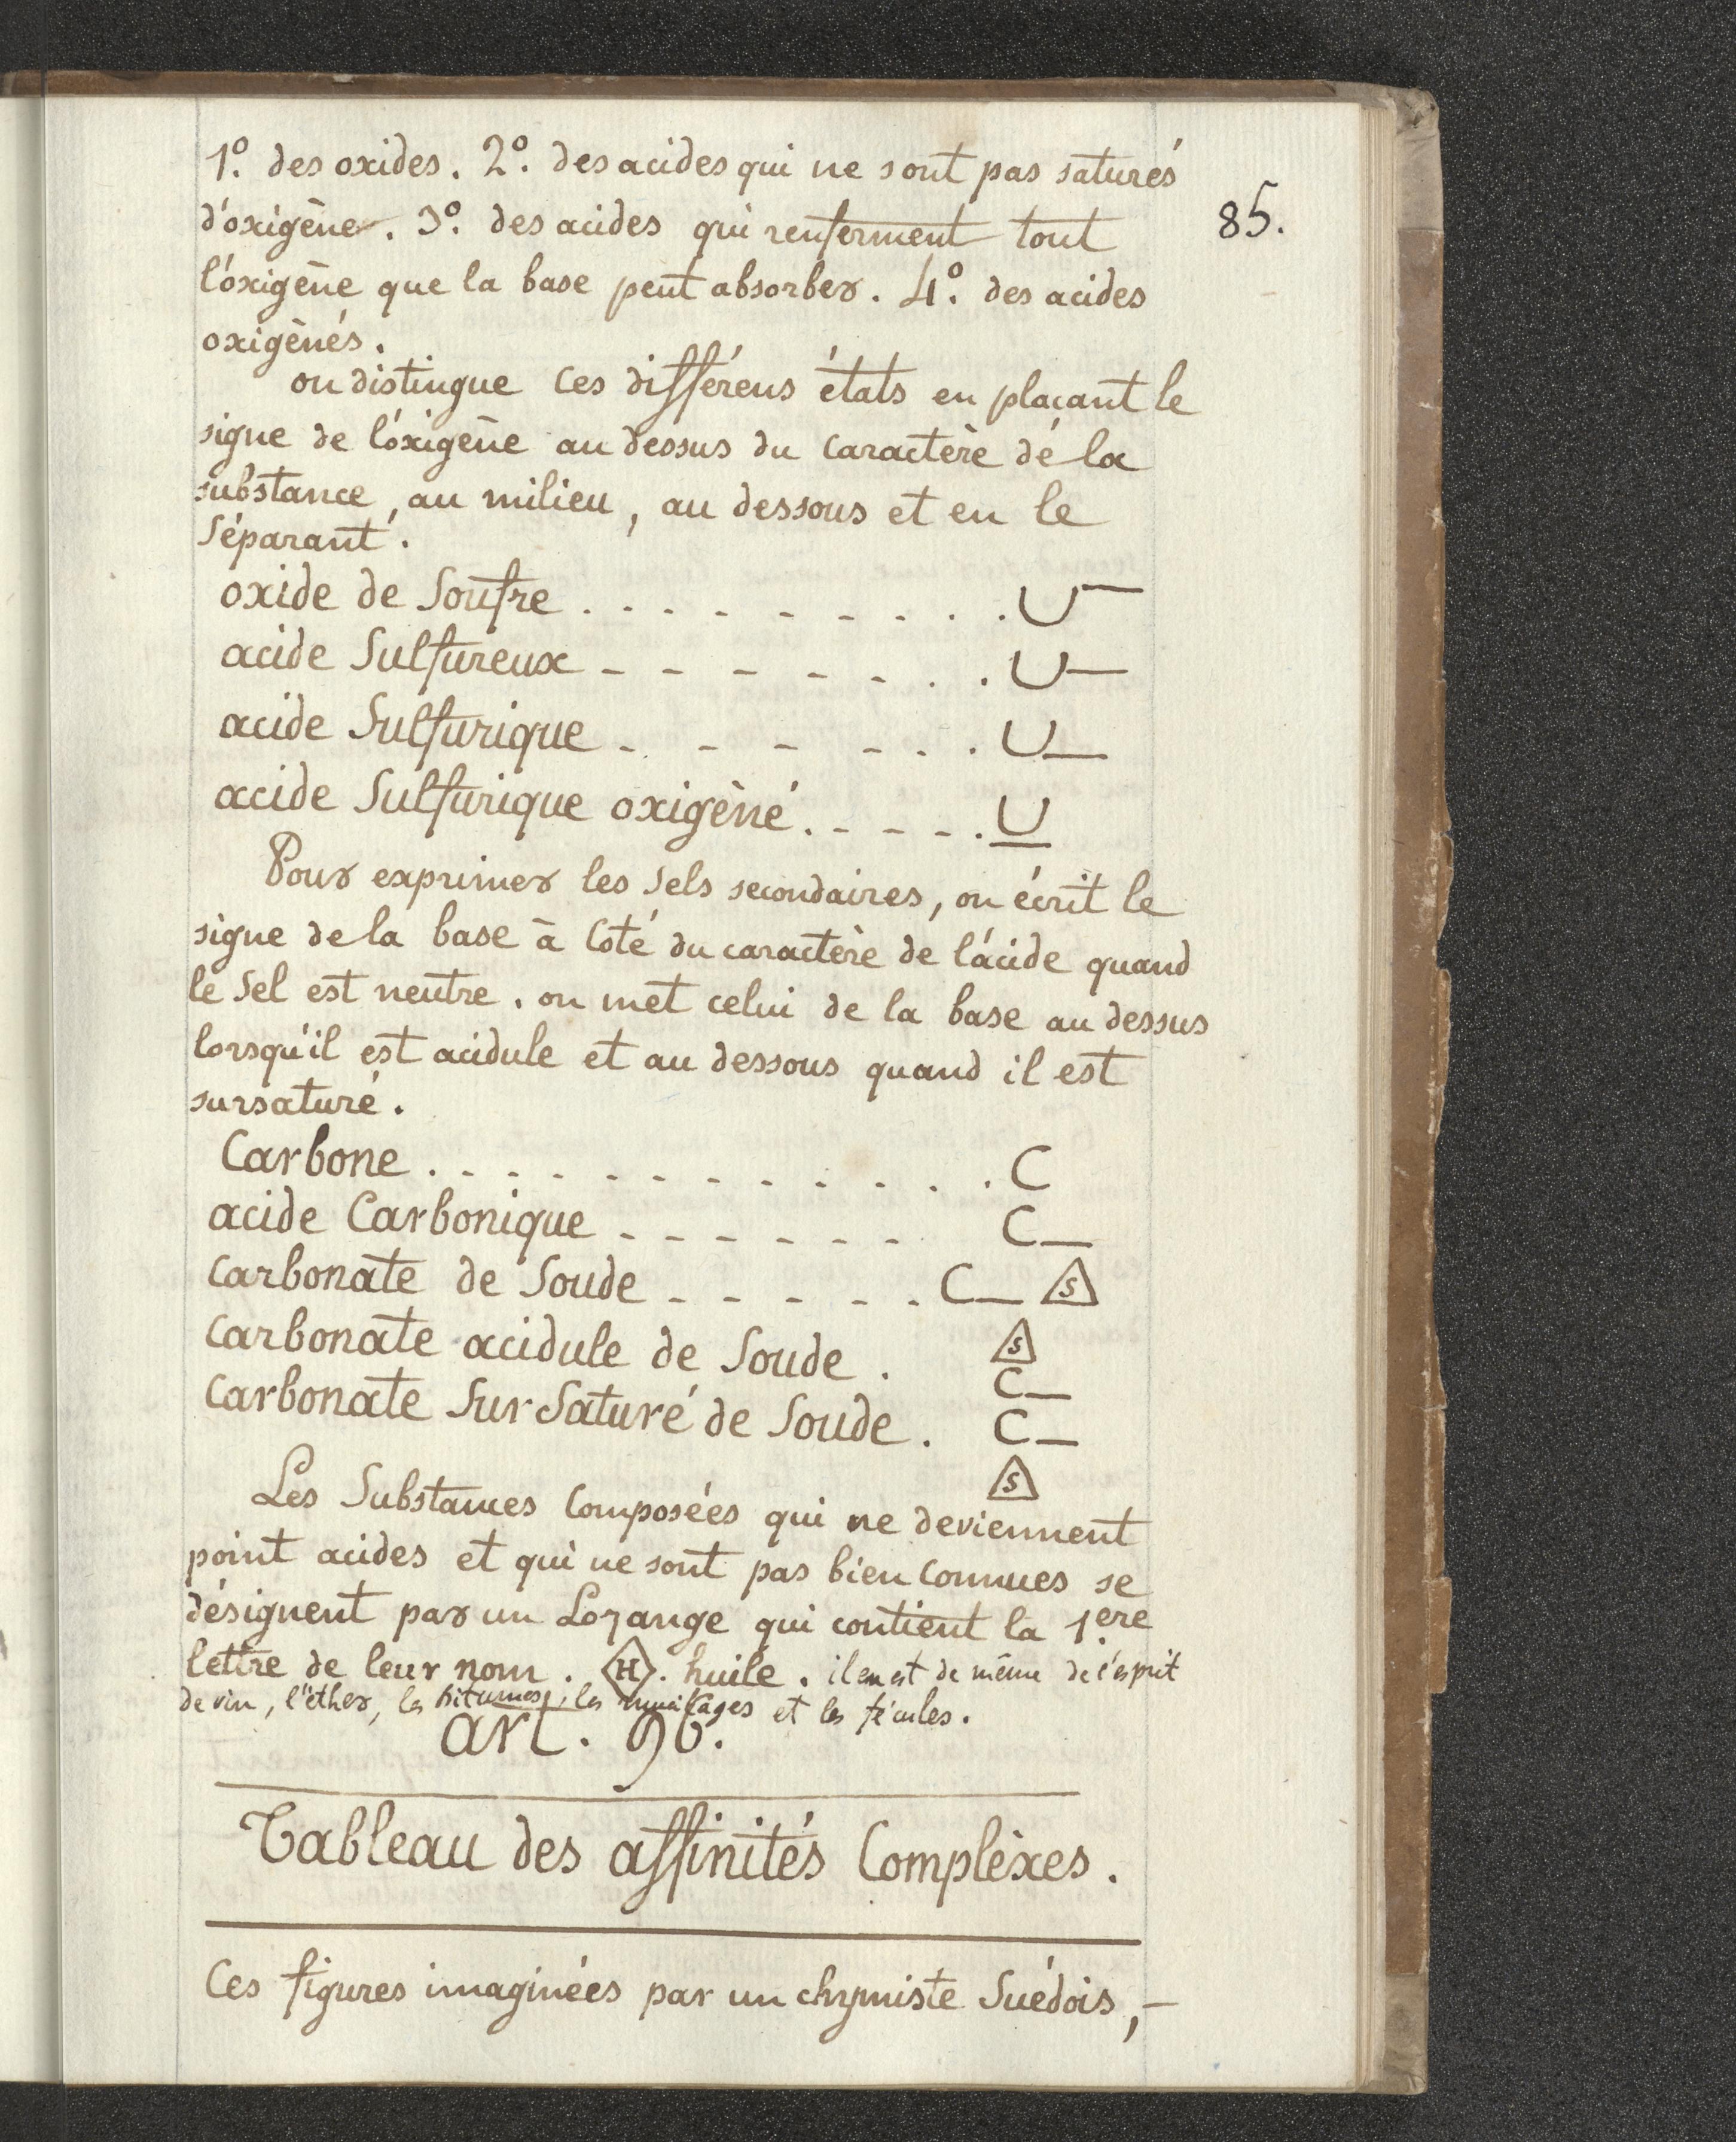 1º. des oxides. 2º. des acides qui ne sont pas saturés
d'oxigène. 3º. des acides qui renferment tout
l'oxigène que la base peut absorber. 4º. des acides
oxigènés.
85.
on distingue ces différens états en plaçant le
signe de l'oxigène au dessus du caractère de la
substance, au milieu, au dessous et en le
séparant.
oxide de Soufre . . . . . . . . . U‾
acide Sulfureux - - - - - - . . U—
acide Sulfurique - - - - - . . U_
acide Sulfurique oxigèné . - - - - . U
Pour exprimer les sels secondaires, on écrit le
signe de la base à coté du caractère de l'acide quand
le sel est neutre. on met celui de la base au dessus
lorsqu'il est acidule et au dessous quand il est
sursaturé.
Carbone . . . . . . . . . . . . C
acide Carbonique - - - - - - - C_
carbonate de Soude - - - - - . C_ S
carbonate acidule de Soude . S
C_
carbonate SurSaturé de Soude . C_
S
Les Substances Composées qui ne deviennent
point acides et qui ne sont pas bien connues se
désignent par un Lozange qui contient la 1ere
lettre de leur nom. H. huile. il en est de même de l'esprit
de vin, l'ether, les bitumes, les mucilages et les fécules.
art. 96.
Tableau des affinités Complèxes.
Ces figures imaginées par un chymiste Suédois, —